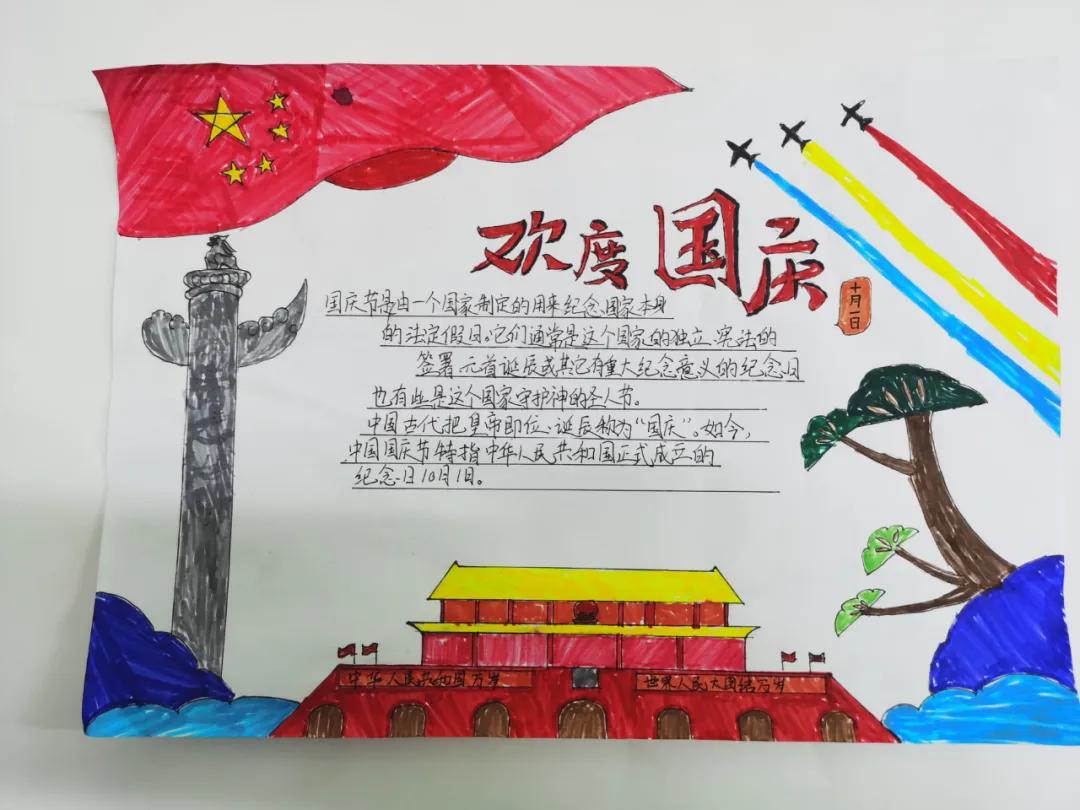 欢度国庆
十月一日
国庆节是由一个国家制定的用来纪念国家本身
的法定假日。它们通常是这个国家的独立、宪法的
签署、元首诞辰或其它有重大纪念意义的纪念日
也有些是这个国家守护神的圣人节。
中国古代把皇帝即位、诞辰称为“国庆”。如今,
中国国庆节特指中华人民共和国正式成立的
纪念日10月1日。
中华人民共和国万岁
世界人民大团结万岁